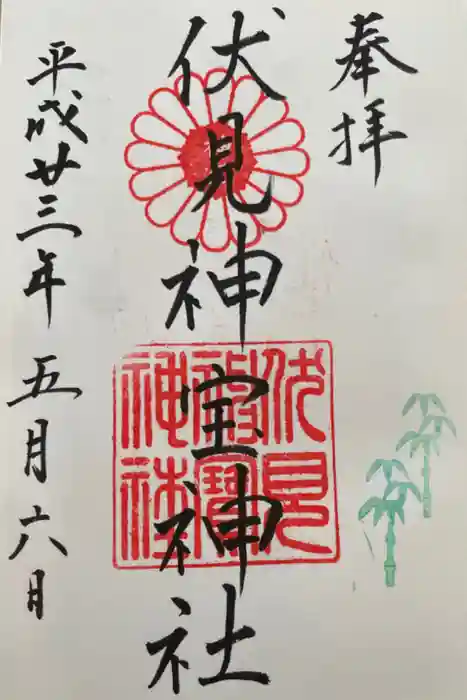 奉拝
伏見神宝神社
伏見
神寳
神社
平成廿三年五月六月